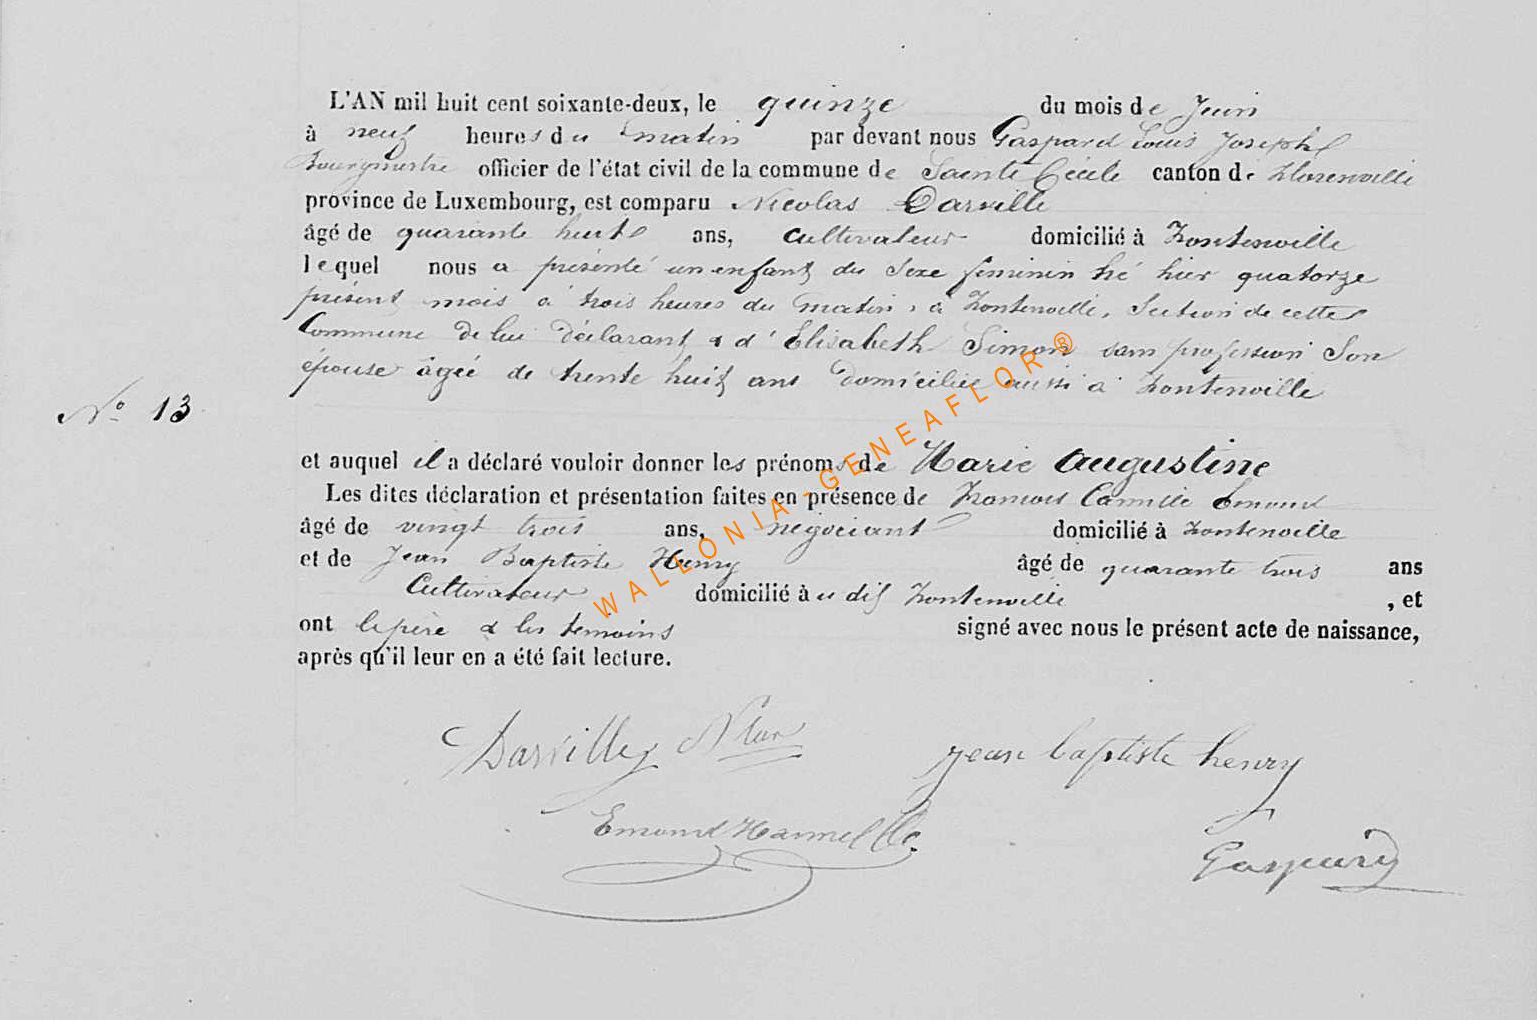 L'AN mil huit cent soixante-deux, le quinze du mois de Juin
à neuf heures du matin par devant nous Gaspard Louis Joseph
Bourgmestre officier de l'état civil de la commune de Sainte Cécile canton de Florenville
province de Luxembourg, est comparu Nicolas Darville
âgé de quarante huit ans, Cultivateur domicilié à Fontenoille
lequel nous a présenté un enfant du sexe féminin né hier quatorze
présent mois à trois heures du matin, à Fontenoille, Section de cette
Commune de lui déclarant & d'Elisabeth Simon sans profession Son
épouse âgée de trente huit ans domiciliée aussi à Fontenoille
N° 13
et auquel il a déclaré vouloir donner les prénoms de Marie Augustine
Les dites déclaration et présentation faites en présence de François Camille Emond
âgé de vingt trois ans, négociant domicilié à Fontenoille
et de Jean Baptiste Henry âgé de quarante trois ans
Cultivateur domicilié à u dit Fontenoille , et
ont le père & les témoins signé avec nous le présent acte de naissance,
après qu'il leur en a été fait lecture.
Darville
jean baptiste henry
Emond
Gaspard
WALLONIA-GENEAFLOR®